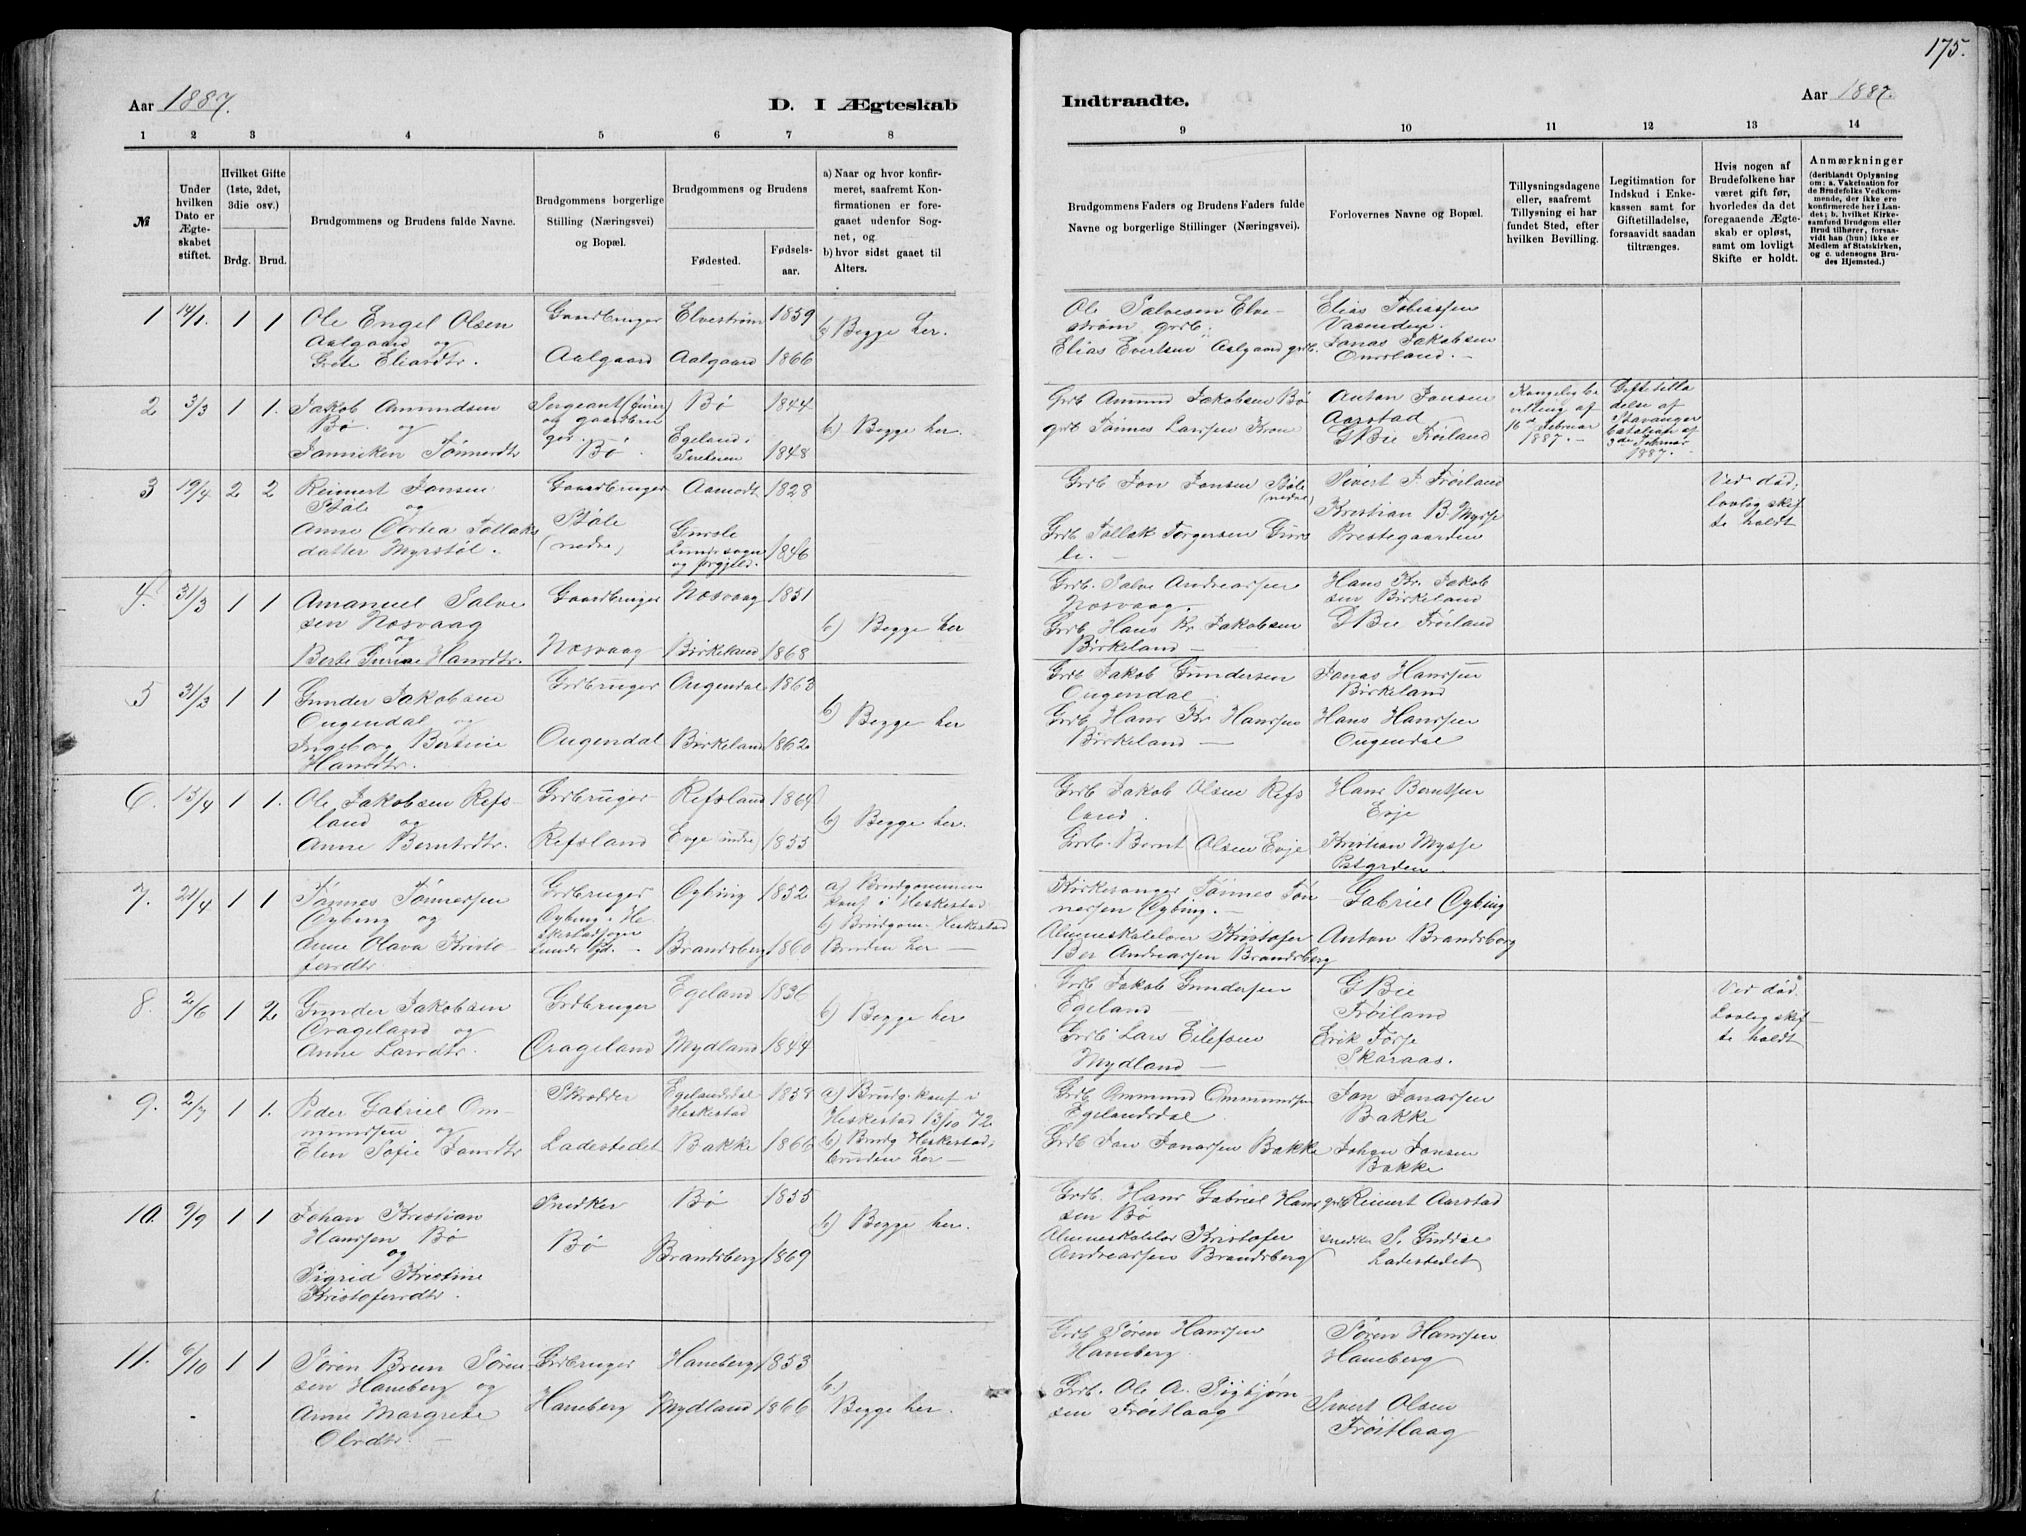 175.
Aar 1887.
D. I Ægteskab
Indtraadte.
Aar 1887.
1 2 3 4 5 6 7 8
9 10 11 12 13 14
№
Under hvilken Dato er Ægteskabet stiftet.
Hvilket Gifte (1ste, 2det, 3die osv.)
Brdg. Brud.
Brudgommens og Brudens fulde Navne.
Brudgommens borgerlige Stilling (Næringsvei) og Bopæl.
Brudgommens og Brudens
Fødested.
Fødselsaar.
a) Naar og hvor konfirmeret, saafremt Konfirmationen er foregaaet udenfor Sognet, og
b) hvor sidst gaaet til Alters.
Brudgommens Faders og Brudens Faders fulde Navne og borgerlige Stillinger (Næringsvei).
Forlovernes Navne og Bopæl.
Tillysningsdagene eller, saafremt Tillysning ei har fundet Sted, efter hvilken Bevilling.
Legitimation for Indskud i Enkekassen samt for Giftetilladelse, forsaavidt saadan tiltrænges.
Hvis nogen af Brudefolkene har været gift før, hvorledes da det foregaaende Ægteskab er opløst, samt om lovligt Skifte er holdt.
Anmærkninger (deriblandt Oplysning om: a. Vakcination for de Brudefolks Vedkommende, der ikke ere konfirmerede her i Landet; b. hvilket Kirkesamfund Brudgom eller Brud tilhører, forsaavidt han (hun) ikke er Medlem af Statskirken, og c. udensogns Brudes Hjemsted.)
1 14/1. 1 1 Ole Engel Olsen Aalgaard og Grete Eliasdtr. Gaardbruger Aalgaard Elvestrøm 1859 Aalgaard 1866 b) Begge her.
Ole Salvesen Elvestrøm grdb. Elias Evertsen Aalgaard grdb. Elias Tobiassen Vasenden. Jonas Jakobsen
2 3/3 1 1. Jakob Amundsen Bø og Janniken Tønnesdtr Sergeant og gaardbruger. Bø. Bø 1844 Egeland i 1848 b) Begge her.
Grdb Amund Jakobsen Bø grdb Tønnes Larssen Anton Jonsen Aarstad G Bie Frøiland Kongelig bevilling af 16d Februar 1887. Giftetilladelse af Stavanger Bataljon af 3die Februar 1887.
3 19/4 2 2 Reinert Jonsen Støle og Anne Dortea Tollaksdatter Myrstøl. Gaardbruger Støle (nedre) Aamodt 1828 Gursle Lunds sogn og prgjeld. 1846
Grdb Jon Jonsen Støle (nedre) Grdb Tollak Torgersen Gursle. Sivert J. Frøiland Kristian B. Mysse Prestegaarden Ved død; lovlog skifte holdt
4. 31/3 1 1 Amanuel Salvesen Nesvaag og Berte Gurine Hansdtr. Gaardbruger Nesvaag Nesvaag 1851 Birkeland 1868 b) Begge her
Grdb. Salve Andreassen Nesvaag. Grdb Hans Kr. Jakobsen Birkeland Hans Kr. Jakobsen Birkeland G Bie Frøiland
5 31/3 1 1 Gunder Jakobsen Ougendal og Ingeborg Bertine Hansdtr. Grdbruger Ougendal Ougendal 1863 Birkeland 1862 b) Begge her
Grdb Jakob Gundersen Ougendal Grdb Hans Kr Hanssen Birkeland Jonas Hanssen Birkeland Hans Hanssen Ougendal
6. 13/4 1 1. Ole Jakobsen Refsland og Anne Berntsdtr. Grdbruger Refsland Refsland 1864 Eve indre 1855 b) Begge her.
Grdb Jakob Olsen Refsland. Grdb. Bernt Olsen Evje Hans Berntsen Evje Kristian Mysse Pstgrden
7. 21/4 1 1 Tønnes Tønnessen Eybing og Anne Olava Kristofersdtr Grdbruger Eybing i Heskestadsogn Lunds Pgd. Eybing 1852 Brandsberg 1860 a) Brudgommen konf i Heskestad b) Brudgom Heskestad Bruden her
Kirkesanger Tønnes Tønnessen Eybing. Almueskolelærer Kristofer Ber Andreassen Brandsberg Gabriel Eybing Anton Brandsberg
8. 2/6 1 2 Gunder Jakobsen Erageland og Anne Larsdtr. Grdbruger Erageland Egeland 1836 Mydland 1844 b) Begge her
Grdb Jakob Gundersen Egeland Grdb. Lars Eilefsen Mydland G Bie Frøiland Erik Torje Skaraas. Ved død. Lovlog skifte holdt
9. 2/7 1 1. Peder Gabriel Ommundsen og Elen Sofie Jonsdtr Skrædder Ladestedet Egelandsdal Heskestad 1858 Bakke 1866 a) Brudg. konf i Heskestad 13/10 72 b) Brudg Heskestad, bruden her
Grdb Ommund Ommundsen Egelandsdal Grdb Jon Jonassen Bakke Jon Jonassen Bakke Johan Jonsen Bakke
10. 9/9 1 1 Johan Kristian Hanssen Bø og Sigrid Kristine Kristofersdtr. Snedker Bø Bø 1855 Brandsberg 1869 b) Begge her.
Grdb. Hans Gabriel Hanssen Bø Almueskolelær Kristofer Andreassen Brandsberg grdb Reinert Aarstad snedker S. Guddal Ladestedet
11. 6/10 1 1 Søren Brun Sørensen Haneberg og Anne Margrete Olsdtr. Grdbruger Haneberg Haneberg 1853 Mydland 1866 b) Begge her.
Grdb Søren Hanssen Haneberg. Grdb. Ole A. Sigbjørnsen Frøitlaag Søren Hanssen Haneberg Sivert Olsen Frøitlaag